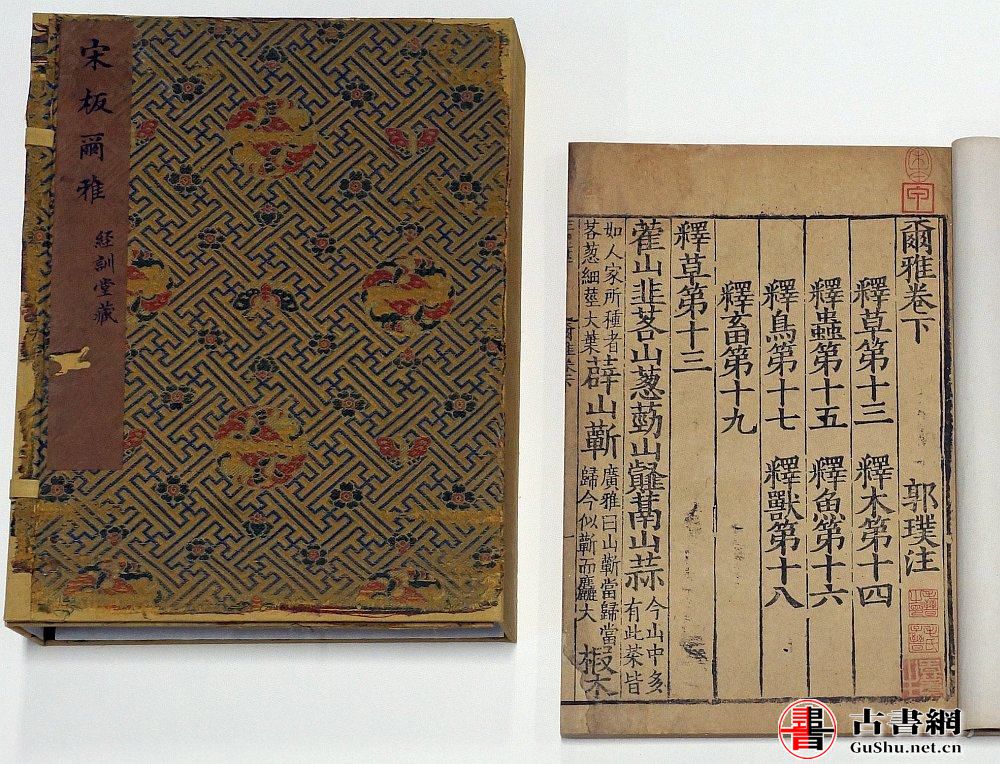 宋板爾雅
経訓堂藏
爾雅卷下 郭璞注
釋草第十三 釋木第十四
釋蟲第十五 釋魚第十六
釋鳥第十七 釋獸第十八
釋畜第十九
釋草第十三
藿山韭茖山葱葝山䪥蒚山蒜 今山中多有此菜皆
如人家所種者茖葱細莖大葉 薜山蘄 廣雅曰山蘄當歸當歸今似蘄而麤大 椴木
書
古書網
GuShu.net.cn